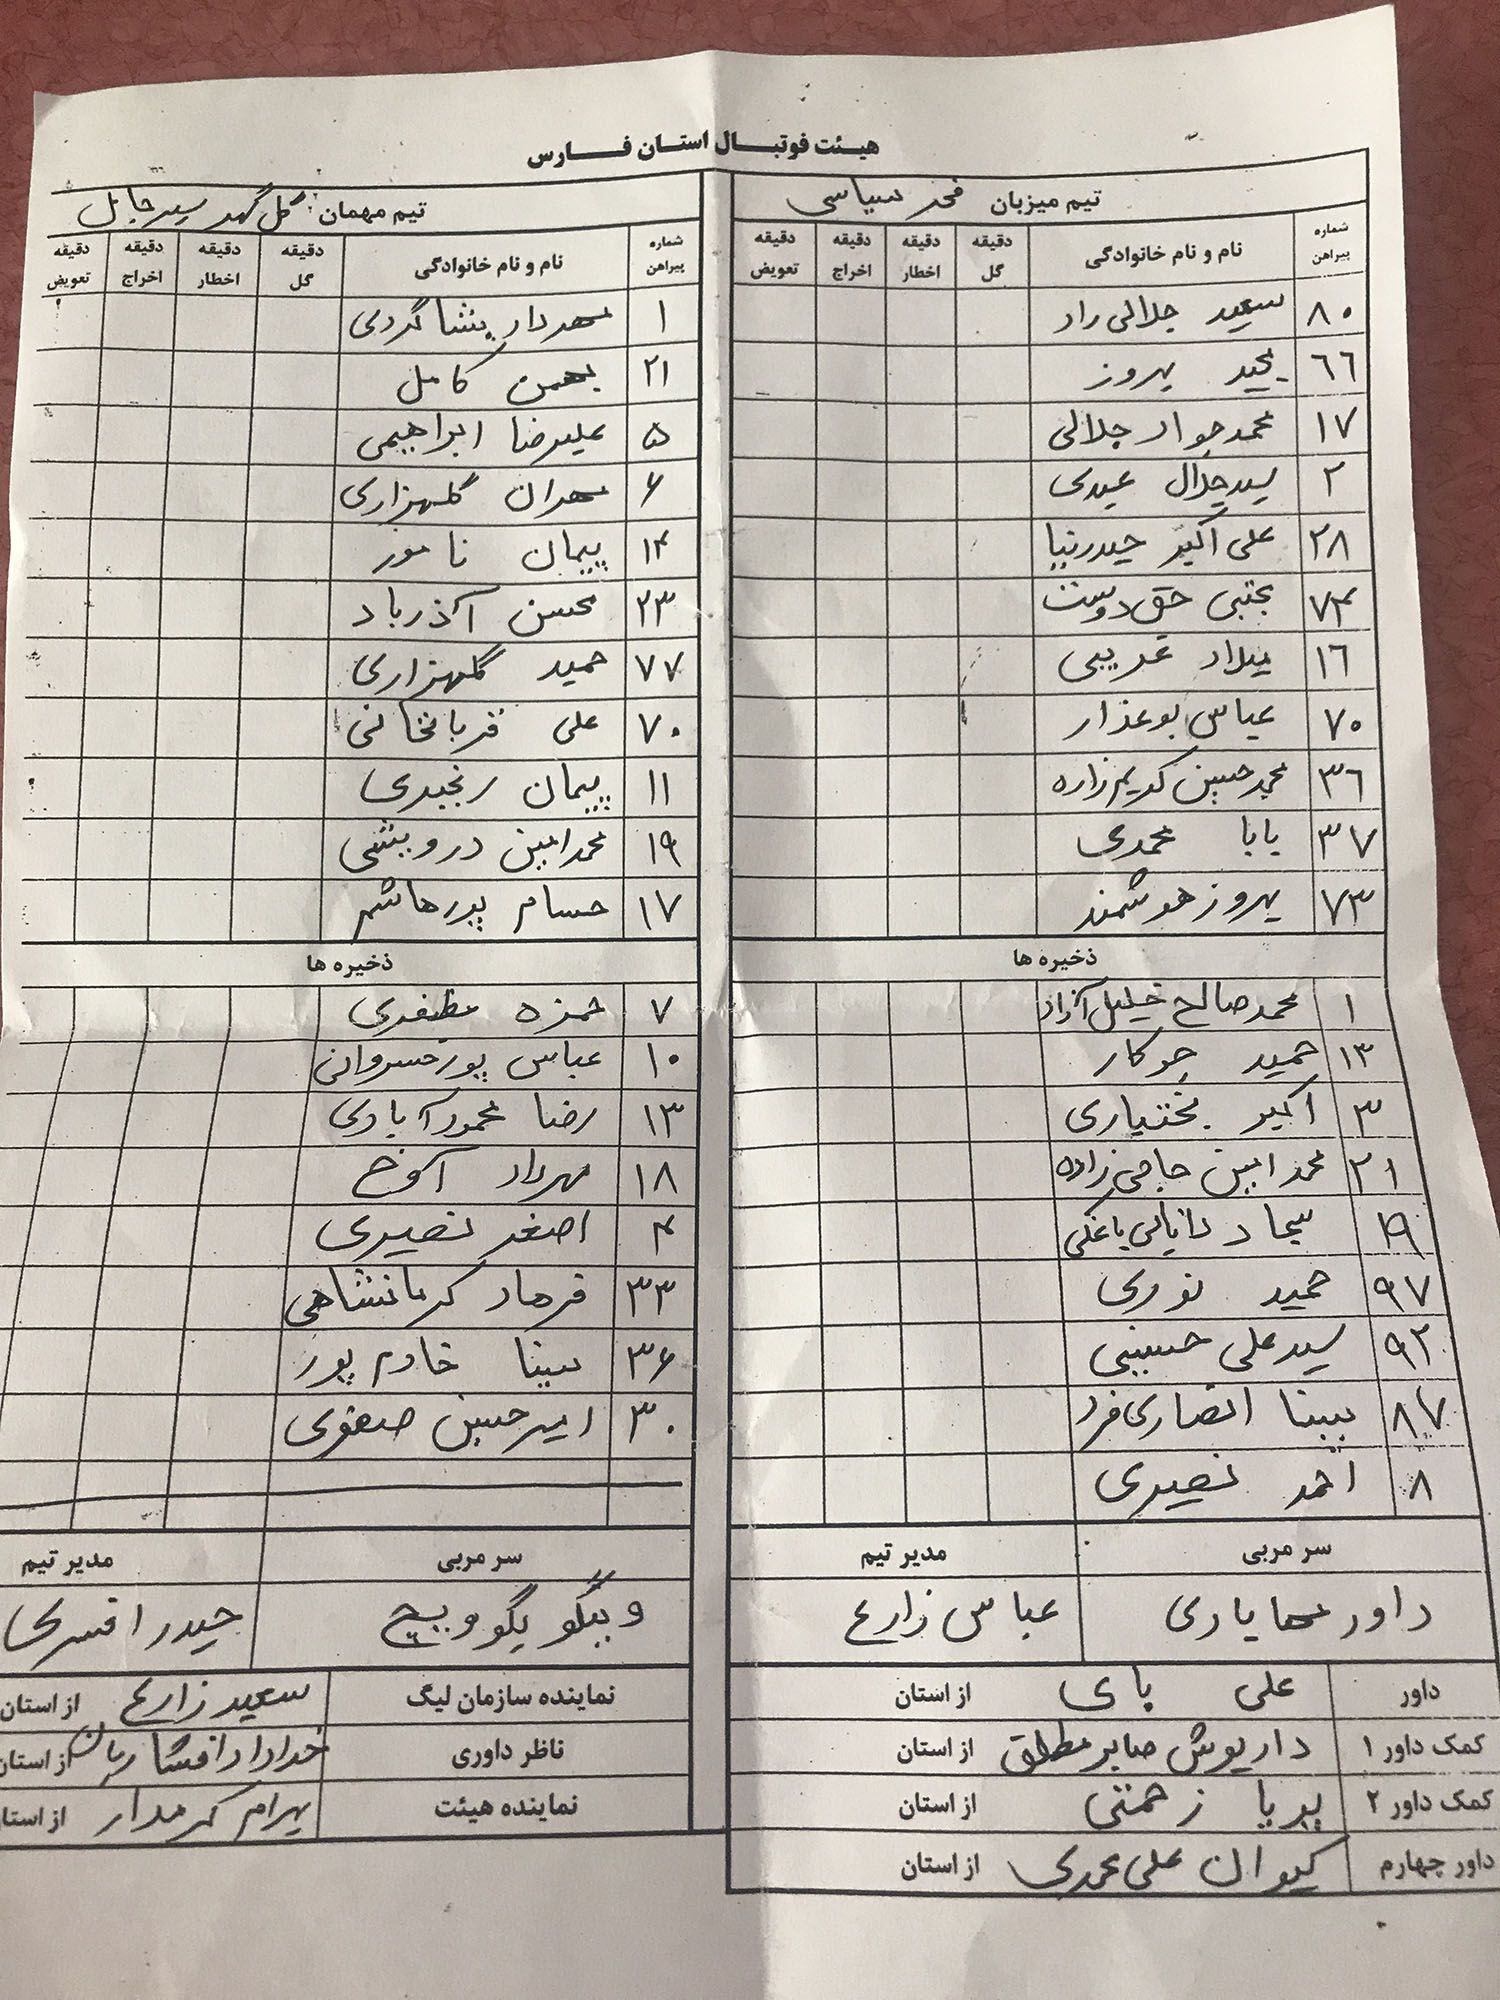 هیئت فوتبال استان فارس
تیم میزبان فجر سپاسی
شماره پیراهن نام و نام خانوادگی دقیقه گل دقیقه اخطار دقیقه اخراج دقیقه تعویض
۸۰ سعید جلالی راد
۶۶ مجید بهروز
۱۷ محمدجواد جلالی
۲ سیدجلال عبدی
۲۸ علی اکبر حیدرنیا
۷۴ مجتبی حق دوست
۱۶ میلاد غریبی
۷۰ عباس بوعذار
۳۶ محمدحسین کریم زاده
۳۷ بابا محمدی
۷۳ بهروز هوشمند
ذخیره ها
۱ محمدصالح خلیل آزاد
۱۳ حمید جوکار
۳ اکبر بختیاری
۲۱ محمدامین حاجی زاده
۱۹ سجاد دانایی باغکی
۹۷ حمید نوری
۹۲ سیدعلی حسینی
۸۷ بینا انصاری فرد
۸ احمد نصیری
سر مربی مدیر تیم
داور مهابادی عباس زارع
داور علی پای از استان
کمک داور ۱ داریوش صابر مطلق از استان
کمک داور ۲ پریا زحمتی از استان
داور چهارم کیوان علی محمدی از استان
تیم مهمان گل گهر سیرجان
شماره پیراهن نام و نام خانوادگی دقیقه گل دقیقه اخطار دقیقه اخراج دقیقه تعویض
۱ مهرداد بشاگردی
۲۱ بهمن کامل
۵ علیرضا ابراهیمی
۶ مهران گلهزاری
۱۴ پیمان نامور
۲۳ محسن آذرباد
۷۷ حمید گلهزاری
۷۰ علی قربانخانی
۱۱ پیمان رنجبری
۱۹ محمدامین درویشی
۱۷ حسام پورهاشم
ذخیره ها
۷ حمزه مظفری
۱۰ عباس پورخسروانی
۱۳ رضا محمودآبادی
۱۸ مهرداد آوخ
۴ اصغر نصیری
۳۳ فرهاد کرمانشاهی
۳۶ سینا خادم پور
۳۰ امیرحسین صفوی
سر مربی مدیر تیم
وینگو بگوویچ حیدر افسری
نماینده سازمان لیگ سعید زارع از استان
ناظر داوری خداداد افشاریان از استان
نماینده هیئت بهرام کرمدار از استان